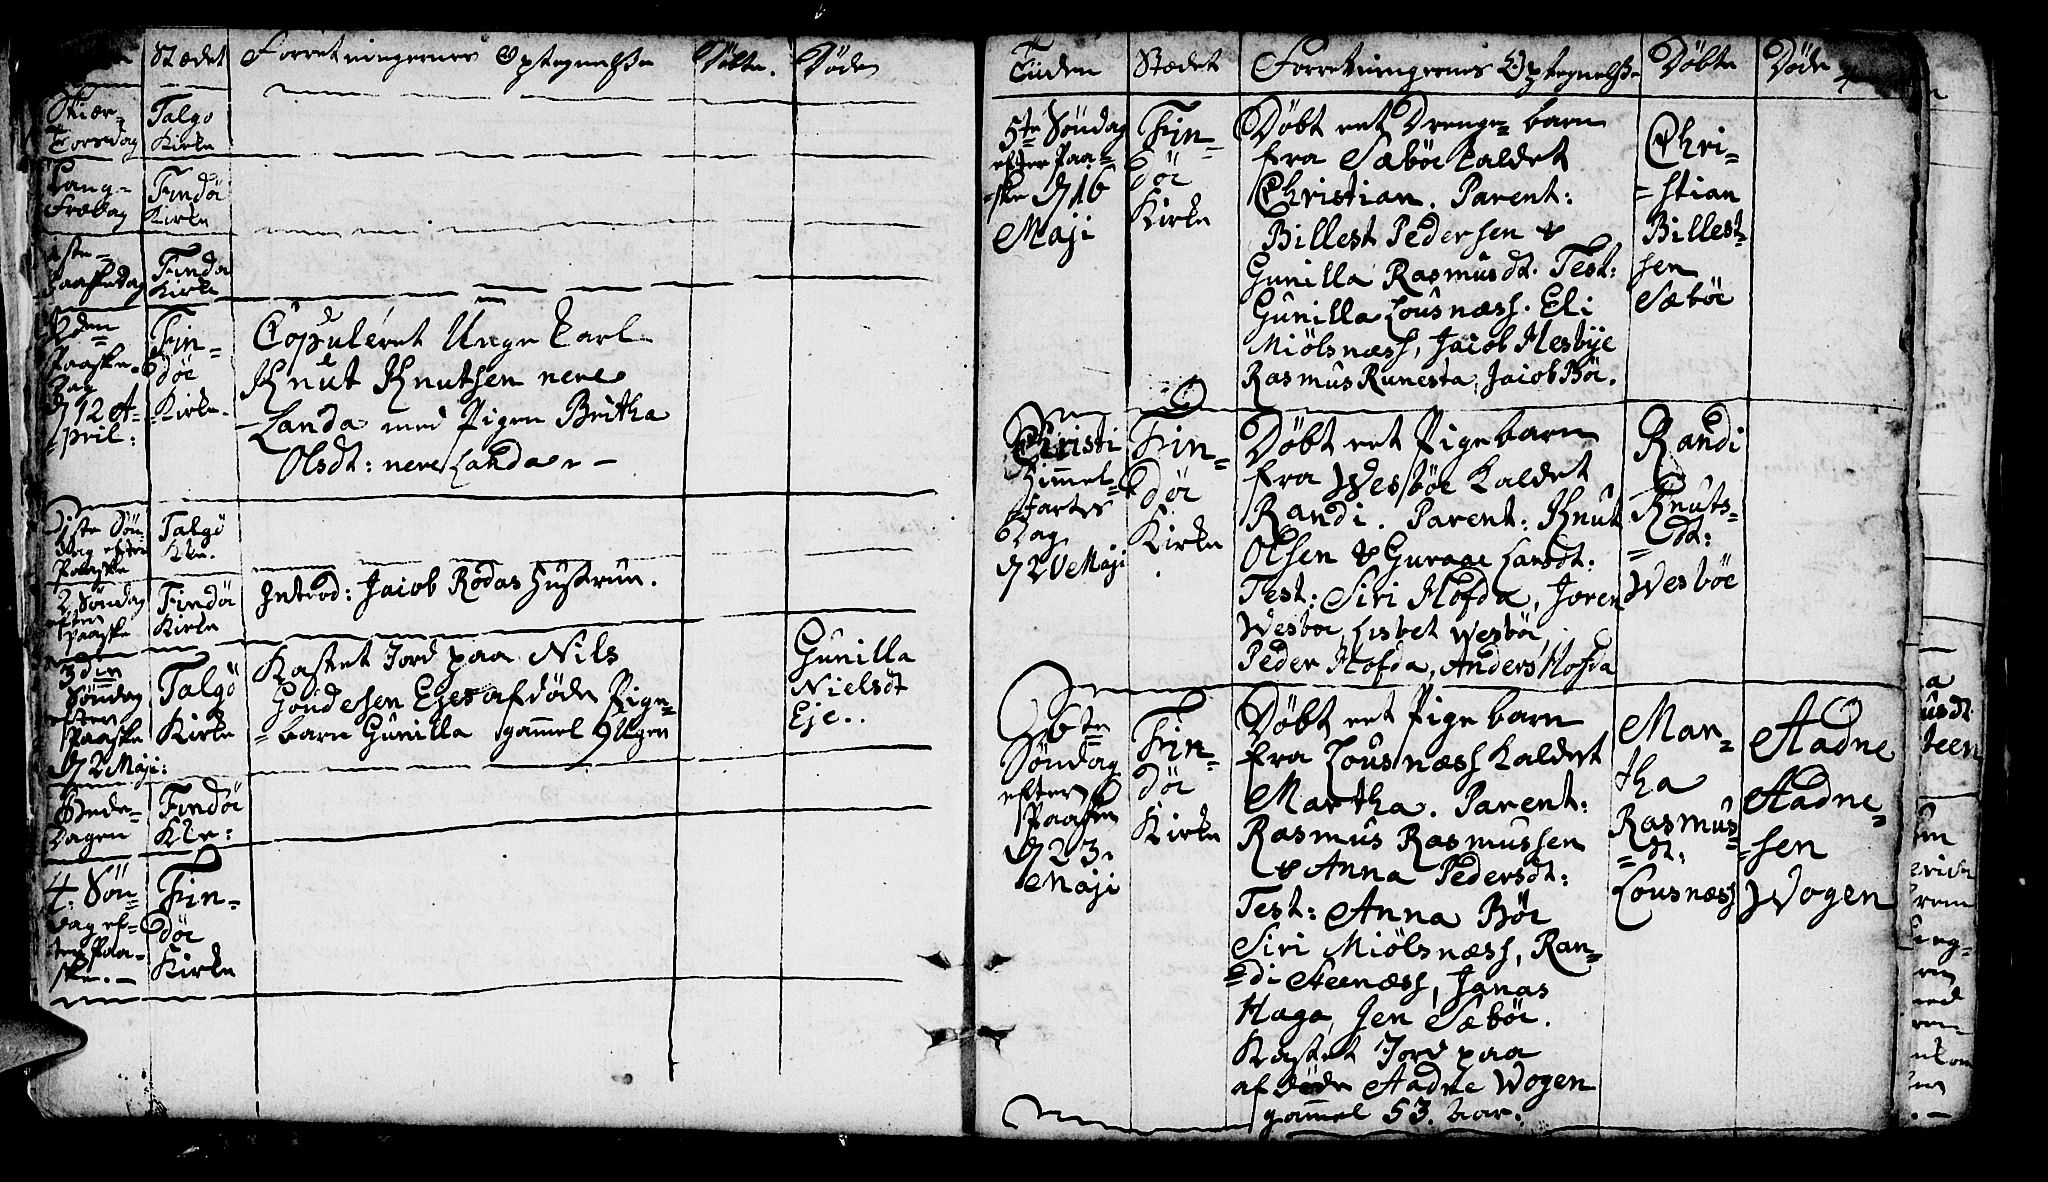 Stædet Forretningernes Optegnelse Døbte. Døde
Skiær-
Torsdag
Talgø
Kirke
Lang-
Fredag
Findøe
Kirke
1ste-
Paaskedag
Findø
Kirke
2den
Paaske-
Dag
d 12 A-
pril:
Fin-
døe
Kirke.
Copuleret Unge Karl
Knut Knutsen nere
Landa med Pigen Britha
Olsdt: nere Landa
1ste Søn-
dag efter
Paaske
Talgø
Kke.
2. Søndag
efter
Paaske
Findøe
Kirke
Introd: Jacob Rødas Hustrue.
3die
Søndag
efter
Paaske
d 2 Maji:
Talgø
Kirke
Kastet Jord paa Nils
Goudesen Ejes afdøde Pige-
barn Gunilla gammel 9 Ugen
Gunilla
Nielsdt
Eje.
Bede-
Dagen
Findøe
Kke:
4. Søn-
dag ef-
ter Paa-
ske.-
Fin-
døe
Kirke
Tiiden Stædet Forretningernes Optegnelse Døbte Døde 4
5te Søndag
efter Paa-
ske d 16
Maji
Fin-
døe
Kirke
Døbt eet Drenge-barn
fra Sæbøe kaldet
Christian. Parent:
Billest Pedersen &
Gunilla Rasmusdt. Test:
Gunilla Lousnæss. Eli
Miølsnæss, Jacob Hesbye
Rasmus Runesta, Jacob Bøe.
Chri-
-stian
Billest-
sen
Sæbøe
Christi
Himmel-
fartes
Dag
d 20 Maji
Fin-
døe
Kirke
Døbt eet Pigebarn
fra Wesbøe kaldet
Randi. Parent: Knut
Olsen & Guroe Larsdt:
Test: Siri Hofda, Joren
Wesbøe, Lisbet Wesbøe,
Peder Hofda, Anders Hofda
Randi
Knuts-
dt:
Wesbøe
6te
Søndag
efter
Paaske
d 23
Maji
Fin-
døe
Kirke
Døbt eet Pigebarn
fra Lousnæss kaldet
Martha. Parent:
Rasmus Rasmussen
& Anna Pedersdt:
Test: Anna Bøe
Siri Miølsnæss, Ran-
di Steenæss, Jonas
Haga, Jen Sæbøe.
Kastet Jord paa
afdøde Aadne Wogen
gammel 53. aar.
Mar-
tha
Rasmus-
dt:
Lousnæss
Aadne
Aadne-
sen
Wogen